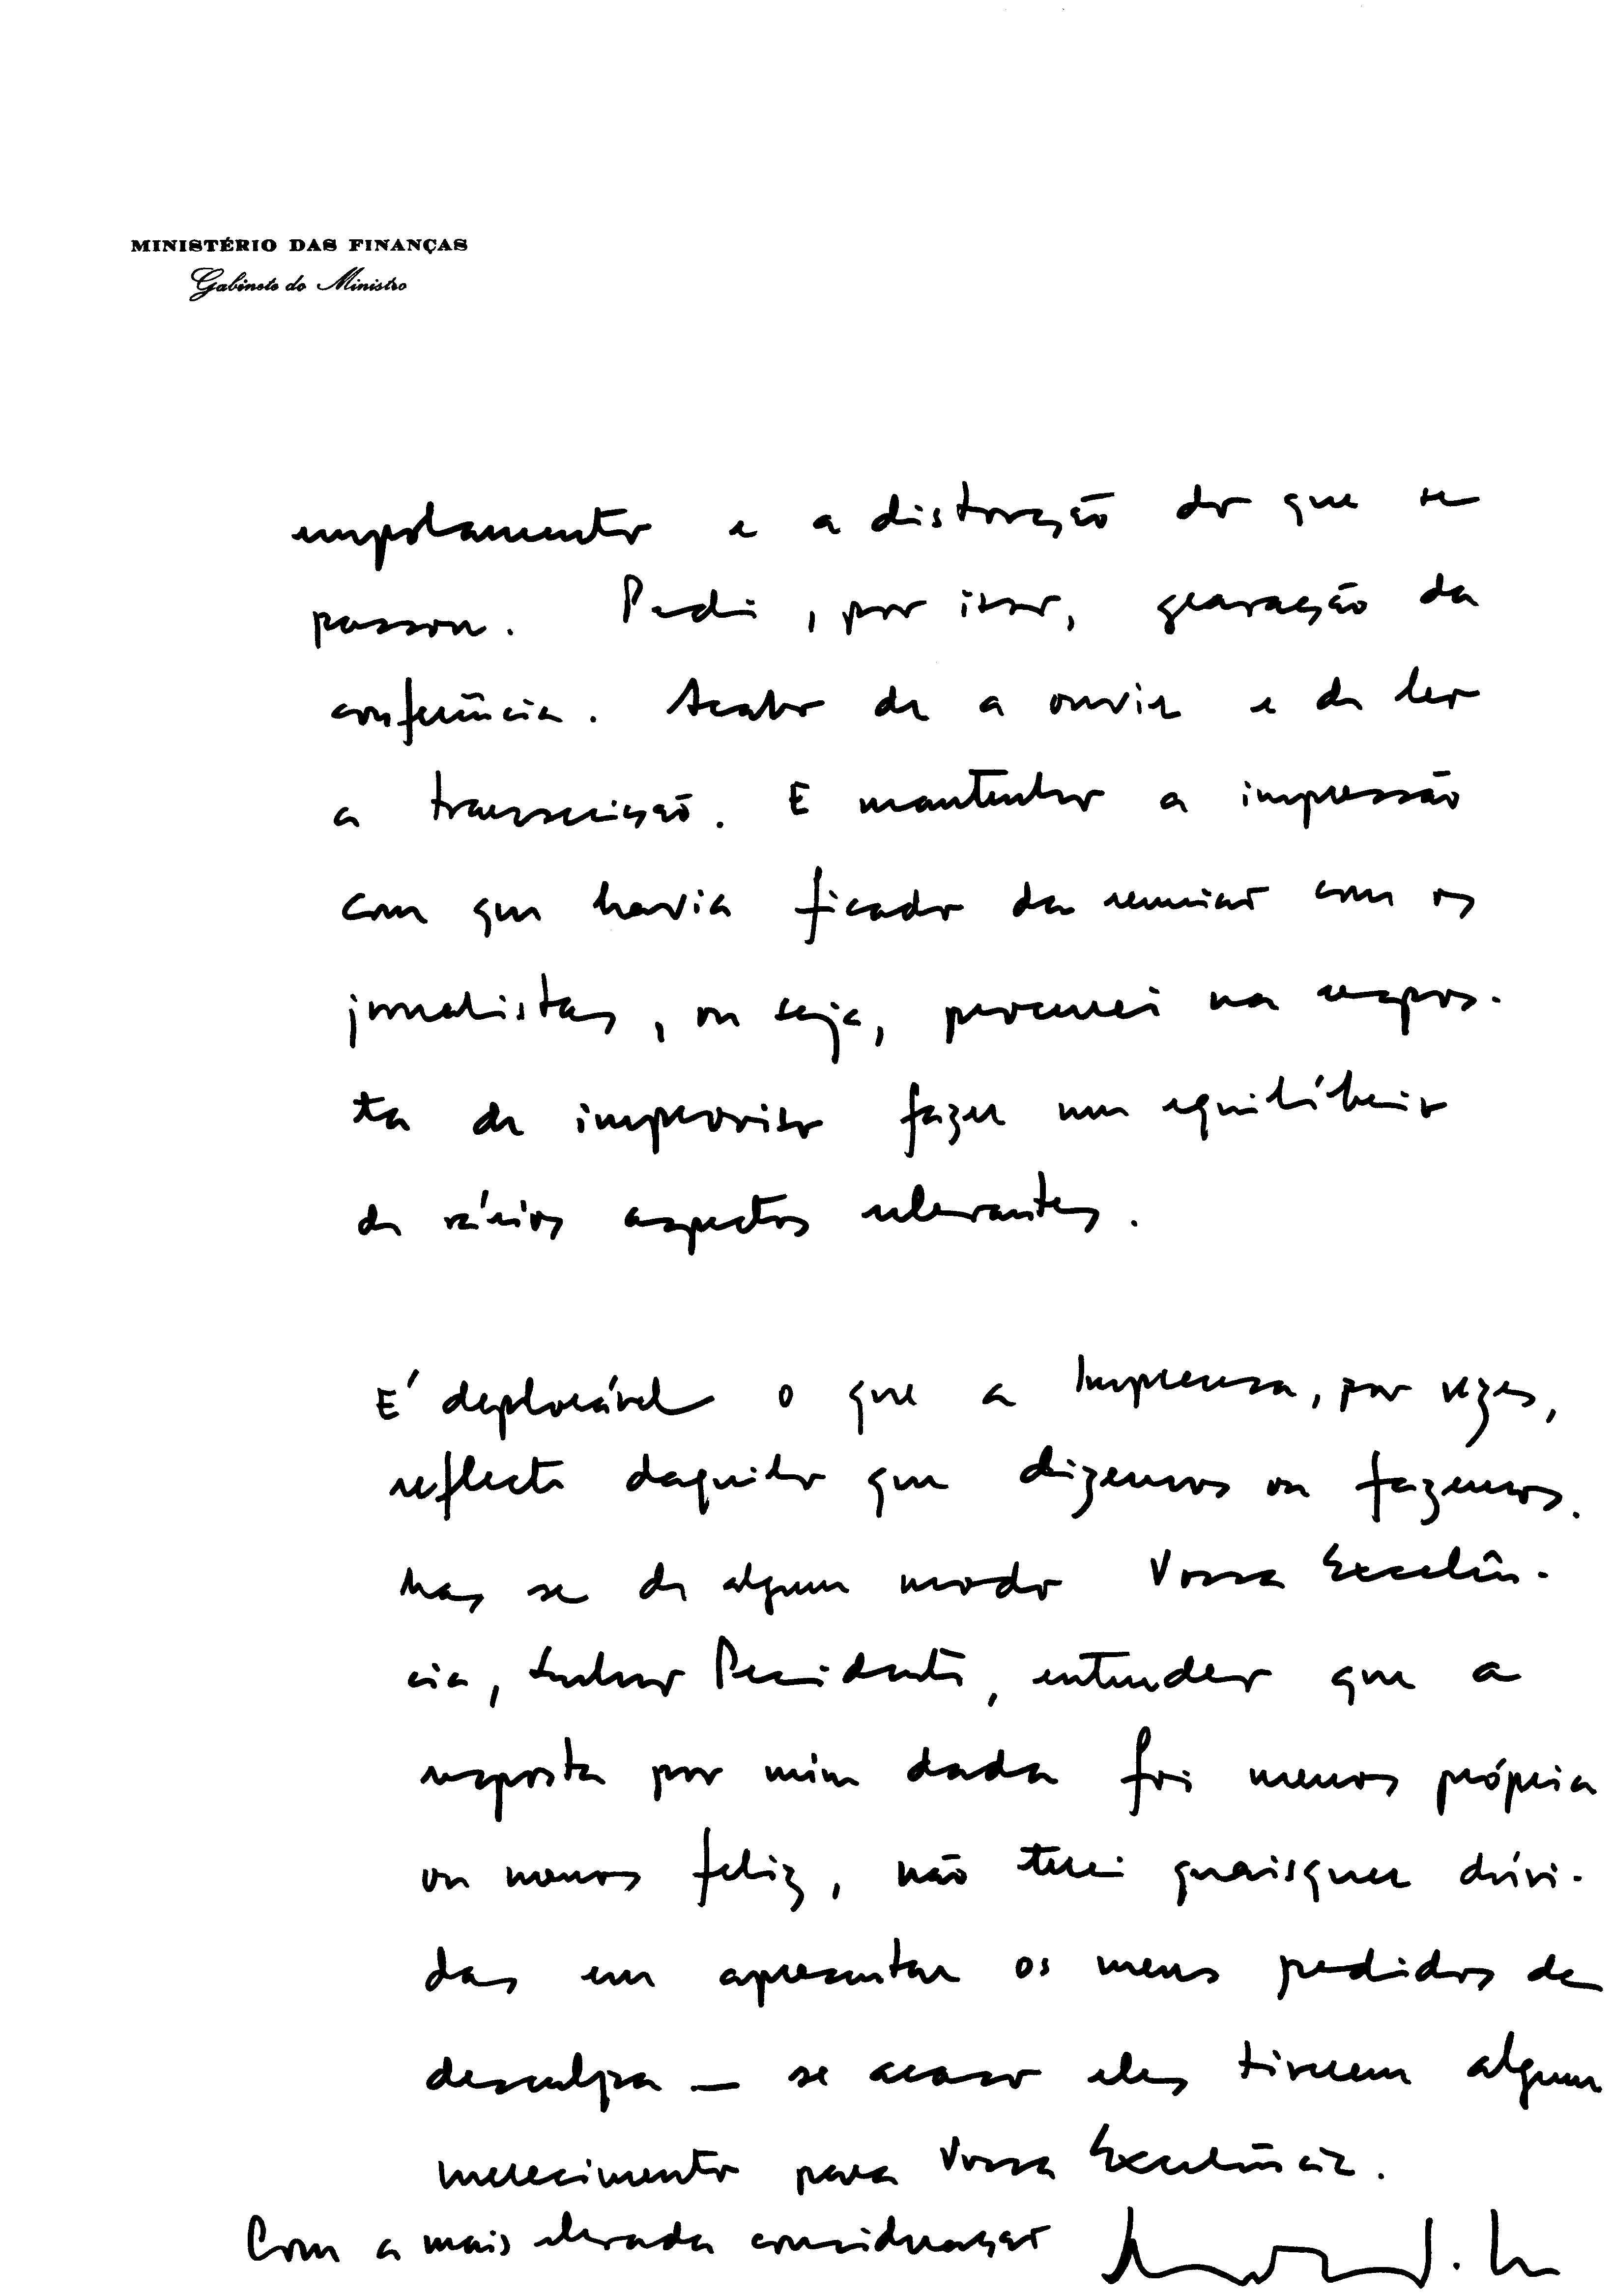 MINISTÉRIO DAS FINANÇAS
Gabinete do Ministro
empolamento e a distorção do que se
passou. Pedi, por isso, gravação da
conferência. Acabo de a ouvir e de ler
a transcrição. E mantenho a impressão
com que havia ficado da reunião com os
jornalistas, ou seja, procurei na respos-
ta de improviso fazer um equilíbrio
de vários aspectos relevantes.
É deplorável o que a Imprensa, por vezes,
reflecte daquilo que dizemos ou fazemos.
Mas se de algum modo Vossa Excelên-
cia, Senhor Presidente, entender que a
resposta por mim dada foi menos própria
ou menos feliz, não terei quaisquer dúvi-
das em apresentar os meus pedidos de
desculpa — se acaso eles tiverem algum
merecimento para Vossa Excelência.
Com a mais elevada consideração